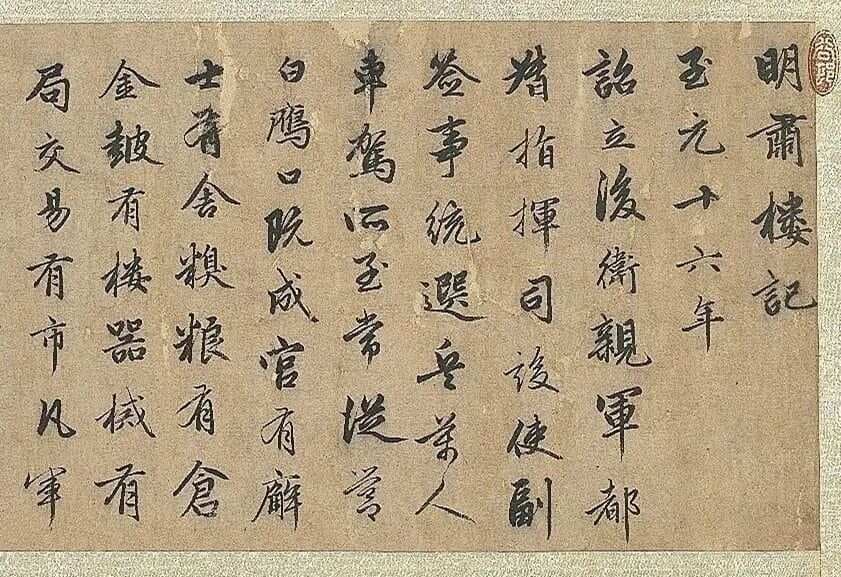 明肅楼記
至元十六年
詔立後衛親軍都
指揮司設使副
僉事統選兵萬人
車駕所至常從營
白鴈口既成官有廨
士有舍糗粮有倉
金鼓有楼器械有
局交易有市凡軍